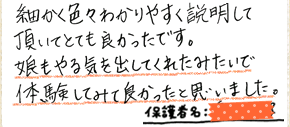 細かく色々わかりやすく説明して
頂いてとても良かったです。
娘もやる気を出してくれたみたいで
体験してみて良かったと思いました。
保護者名: